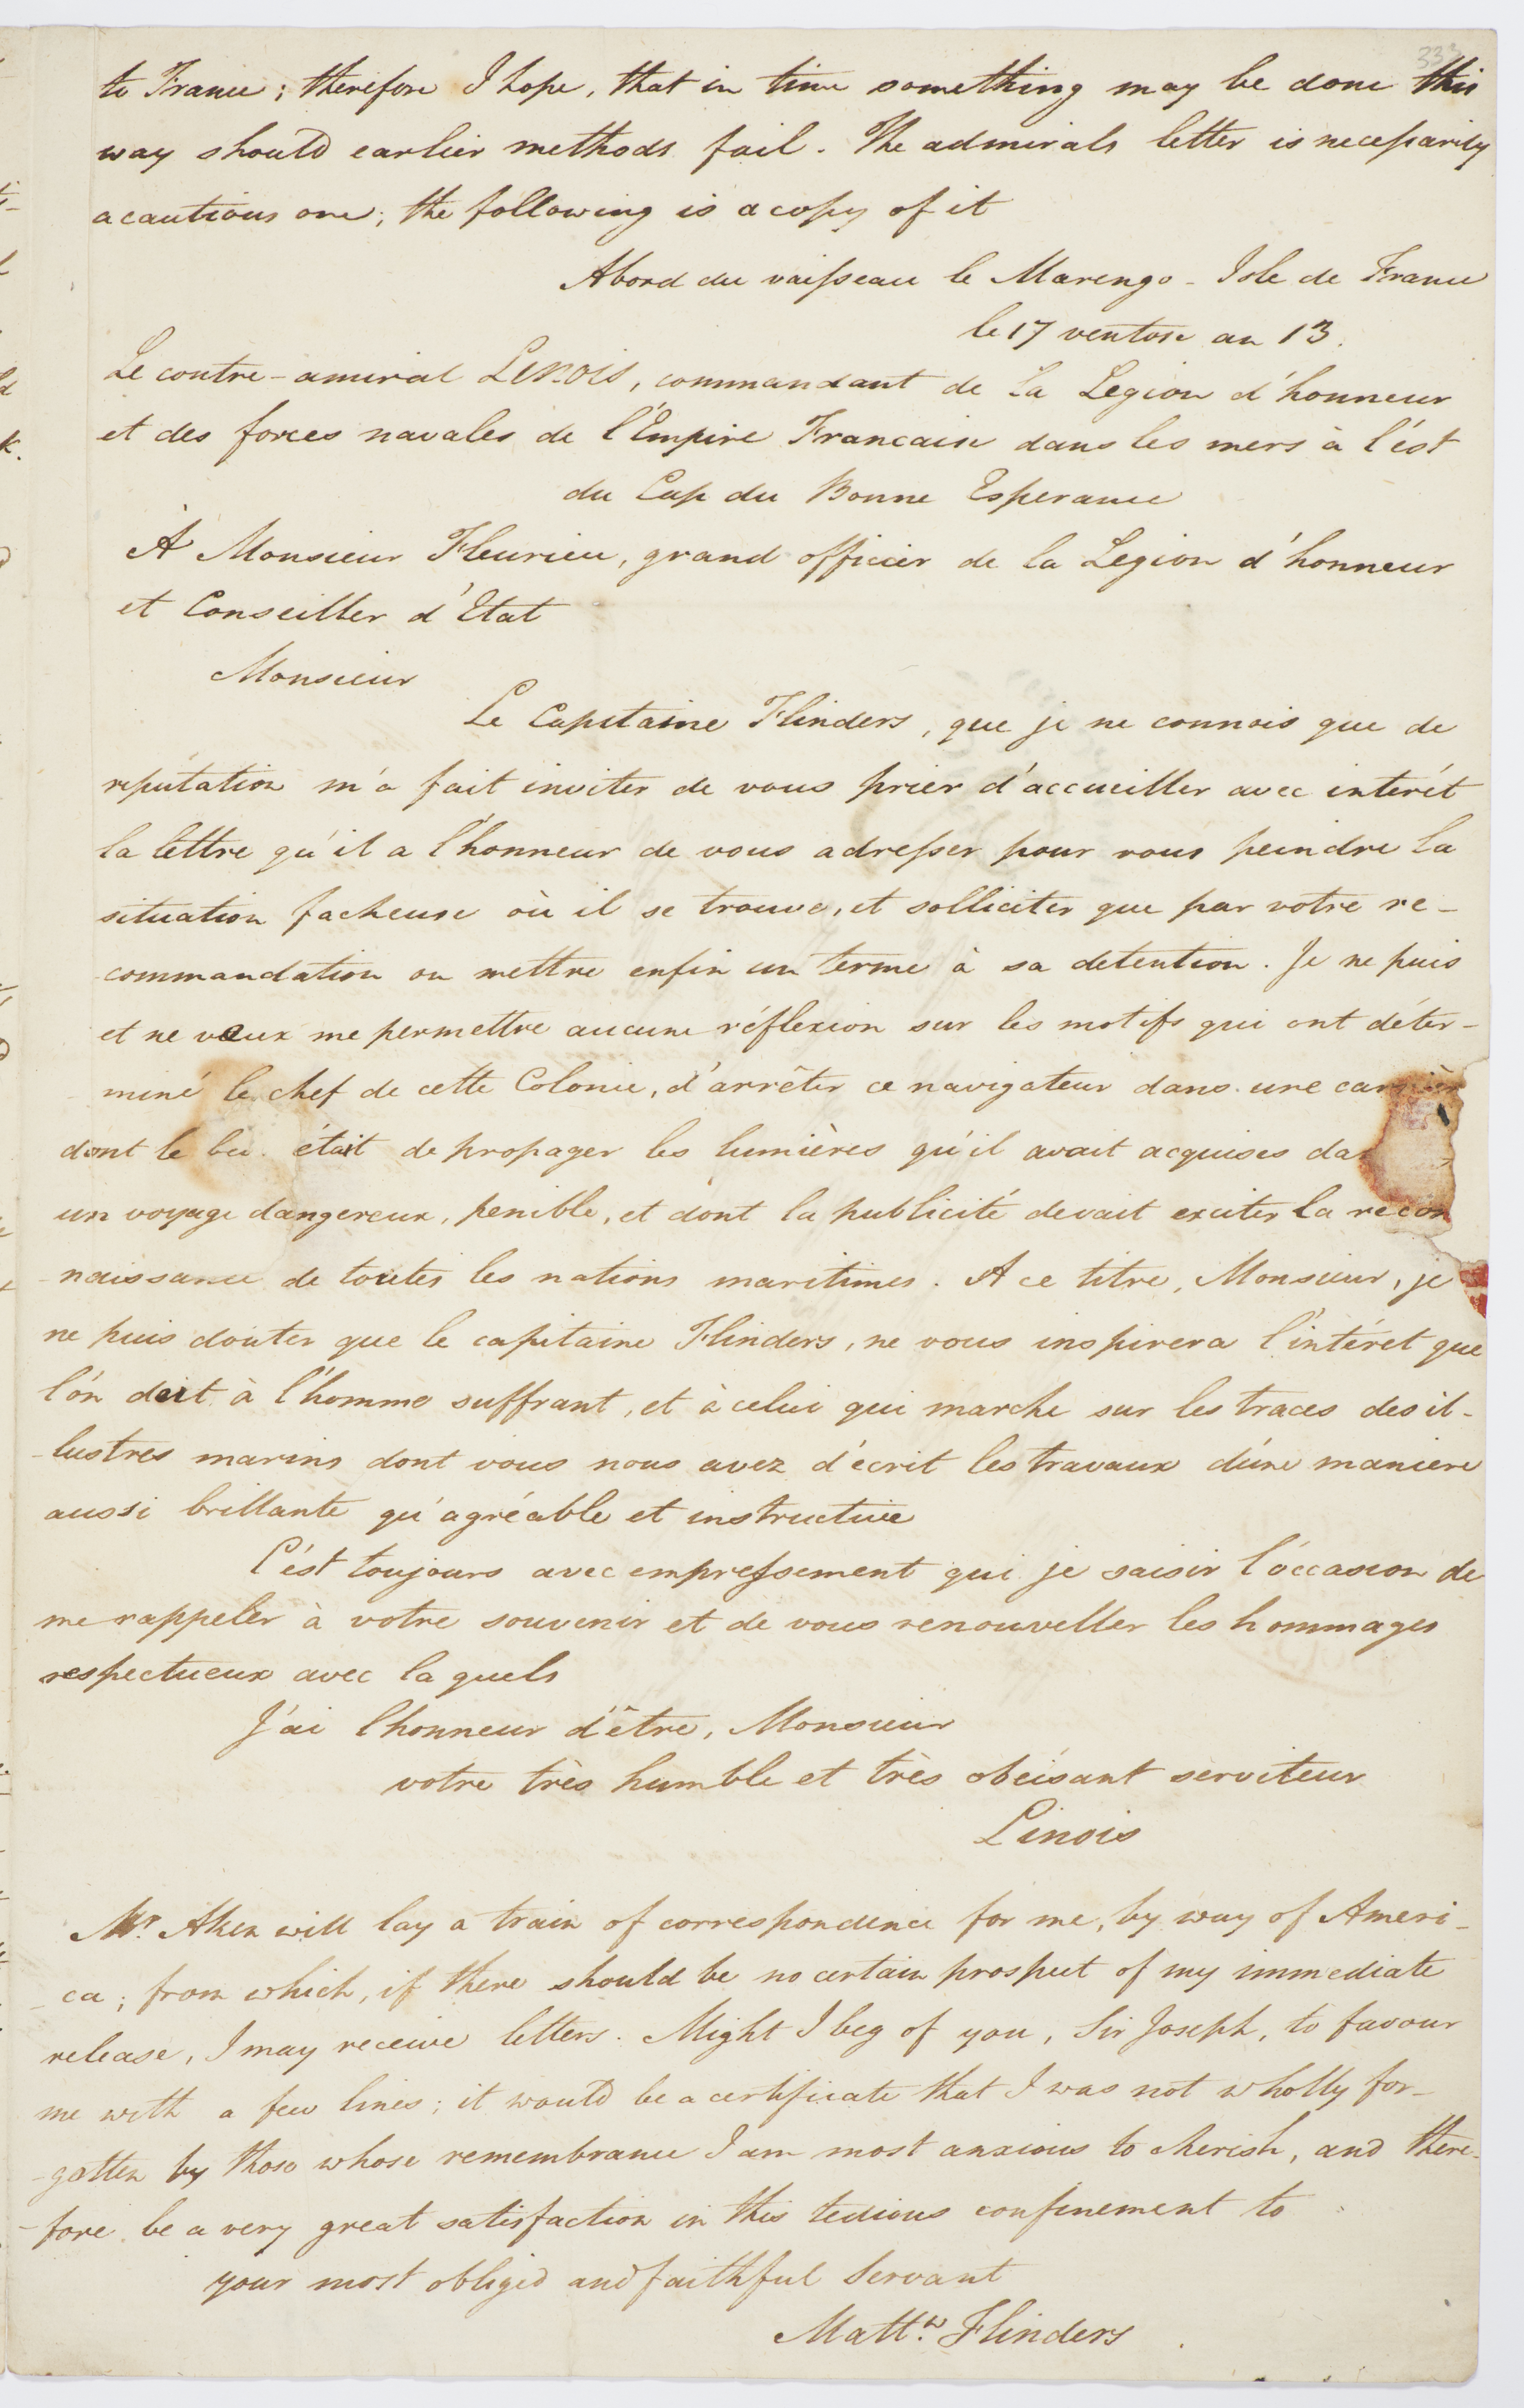 333
to France; therefore I hope, that in time something may be done this
way should earlier methods fail. The admirals letter is necessarily
a cautious one; the following is a copy of it
Abord du vaisseau le Marengo - Isle de France
le 17 ventose an 13.
Le contre-amiral LINOIS, commandant de la Legion d'honneur
et des forces navales de l'Empire Francaise dans les mers à l'ést
du Cap du Bonne Esperance
À Monsieur Fleurieu, grand officier de la Legion d'honneur
et Conseiller d'Etat
Monsieur
Le Capitaine Flinders, que je ne connois que de
reputation m'a fait inviter de vous prier d'accueiller avec interét
la lettre qu'il a l'honneur de vous adresser pour vous peindre la
situation facheuse où il se trouve, et solliciter que par votre re-
commandation on mettre enfin un terme à sa detention. Je ne puis
et ne veux me permettre aucune réflexion sur les motifs qui ont déter-
miné le chef de cette Colonie, d'arrêter ce navigateur dans une carrièr
dont le bu était de propager les lumières qu'il avait acquises da
un voyage dangereux, penible, et dont la publicité devait exciter la recon
naissance de toutes les nations maritimes. A ce titre, Monsieur, je
ne puis douter que le capitaine Flinders, ne vous inspirera l'intéret que
l'on doit à l'homme suffrant, et à celui qui marche sur les traces des il-
-lustres marins dont vous nous avez d'écrit les travaux d'une maniere
aussi brillante qu'agréable et instructive
C'est toujours avec empressement qui je saisir l'occasion de
me rappeler à votre souvenir et de vous renouveller les hommages
respectueux avec la quels
J'ai l'honneur d'être, Monsieur
votre très humble et très obéisant serviteur
Linois
Mr. Aken will lay a train of correspondence for me, by way of Ameri-
-ca; from which, if there should be no certain prospect of my immediate
release, I may receive letters. Might I beg of you, Sir Joseph, to favour
me with a few lines; it would be a certificate that I was not wholly for-
-gotten by those whose remembrance I am most anxious to cherish, and there-
-fore be a very great satisfaction in this tedious confinement to
your most obliged and faithful Servant
Mattw. Flinders